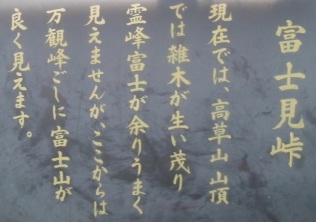 富士見峠
現在では、高草山山頂
では雑木が生い茂り
霊峰富士が余りうまく
見えませんが、ここからは
万観峰ごしに富士山が
良く見えます。